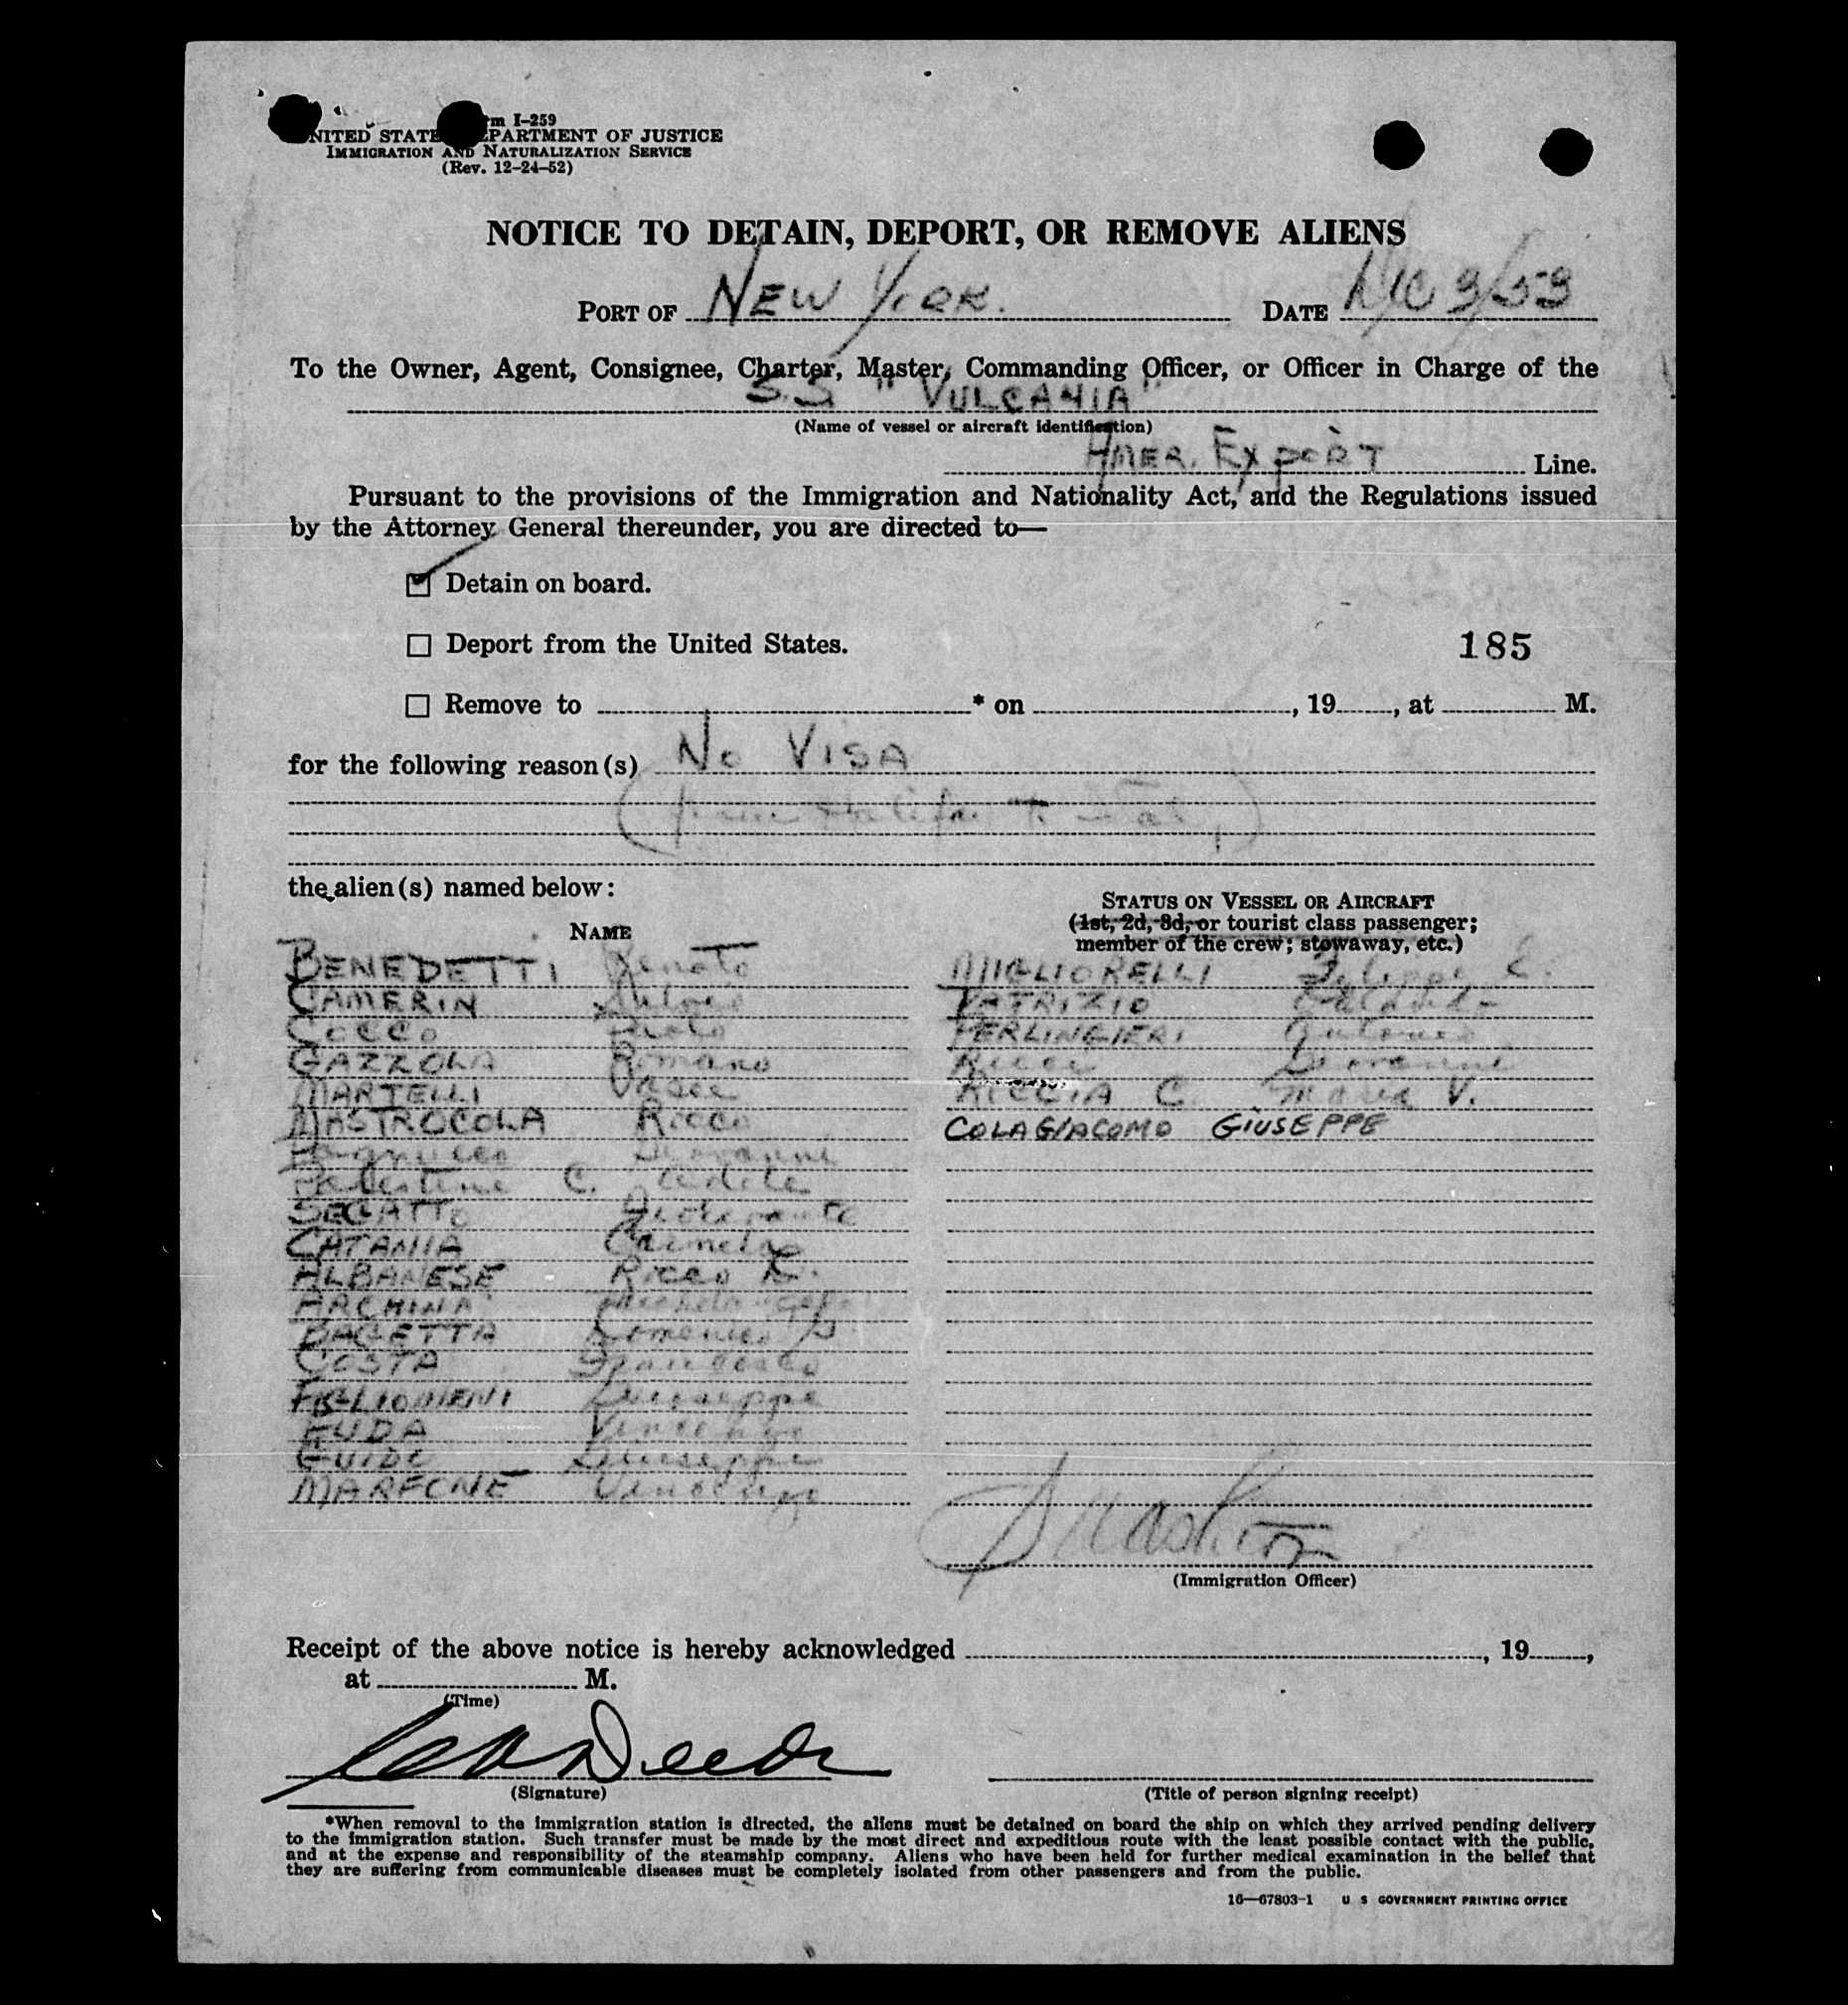 Form I-259
UNITED STATES DEPARTMENT OF JUSTICE
IMMIGRATION AND NATURALIZATION SERVICE
(Rev. 12-24-52)
NOTICE TO DETAIN, DEPORT, OR REMOVE ALIENS
PORT OF NEW YORK. DATE Dec 3/53
To the Owner, Agent, Consignee, Charter, Master, Commanding Officer, or Officer in Charge of the
S.S "VULCANIA"
(Name of vessel or aircraft identification)
AMER. Export Line.
Pursuant to the provisions of the Immigration and Nationality Act, and the Regulations issued
by the Attorney General thereunder, you are directed to—
Detain on board.
Deport from the United States.
185
Remove to * on , 19 , at M.
for the following reason(s) No VISA
(from Halifax to Italy)
the alien(s) named below:
NAME
STATUS ON VESSEL OR AIRCRAFT
(1st, 2d, 3d, or tourist class passenger;
member of the crew; stowaway, etc.)
BENEDETTI Renato
CAMERIN
COCCO
GAZZOLA Romano
MARTELLI
MASTROCOLA Rocco
Giovanni
C.
SEGATTO
CATANIA Carmelo
ALBANESE Rocco
ARCHINA
BAGETTA Domenico
COSTA Francesco
Giuseppe
FUDA Vincenzo
GUIDO Giuseppe
MARFONE Vincenzo
MIGLIORELLI Filippo
PATRIZIO
PERLINGIERI Antonio
Ricci Giovanni
RICCIA C. Maria V.
COLAGIACOMO GIUSEPPE
(Immigration Officer)
Receipt of the above notice is hereby acknowledged , 19 ,
at M.
(Time)
(Signature)
(Title of person signing receipt)
*When removal to the immigration station is directed, the aliens must be detained on board the ship on which they arrived pending delivery
to the immigration station. Such transfer must be made by the most direct and expeditious route with the least possible contact with the public,
and at the expense and responsibility of the steamship company. Aliens who have been held for further medical examination in the belief that
they are suffering from communicable diseases must be completely isolated from other passengers and from the public.
16—67803-1 U S GOVERNMENT PRINTING OFFICE